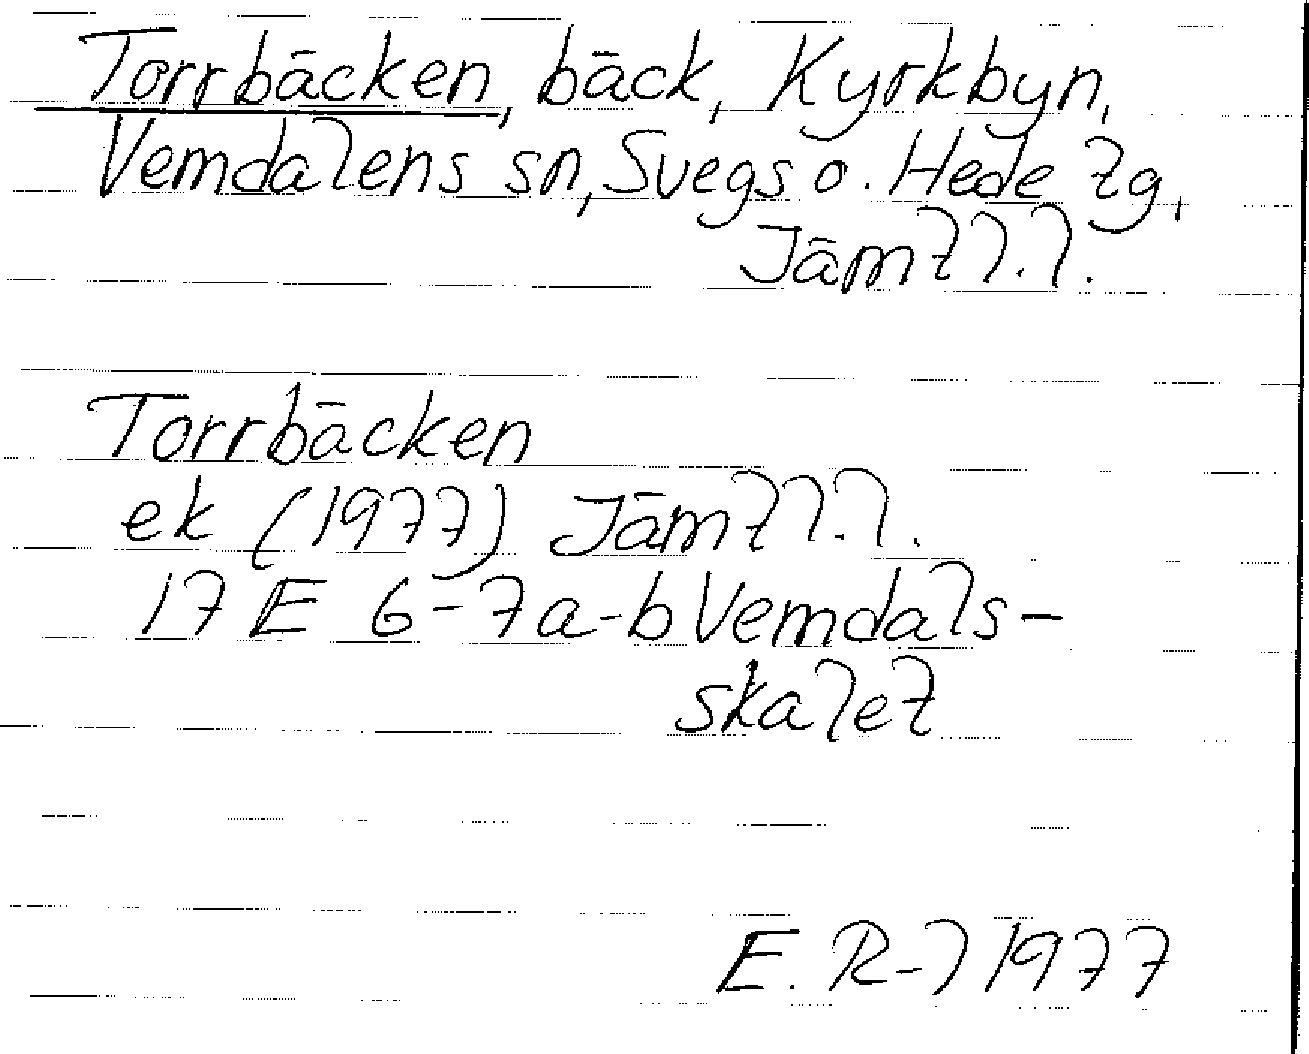 Torrbäcken, bäck, Kyrkbyn,
Vemdalens sn, Svegs o. Hede tg,
Jämtl.l.
Torrbäcken
ek (1977) Jämtl.l.
17 E 6-7a-b Vemdals-
skalet
E. R-l 1977